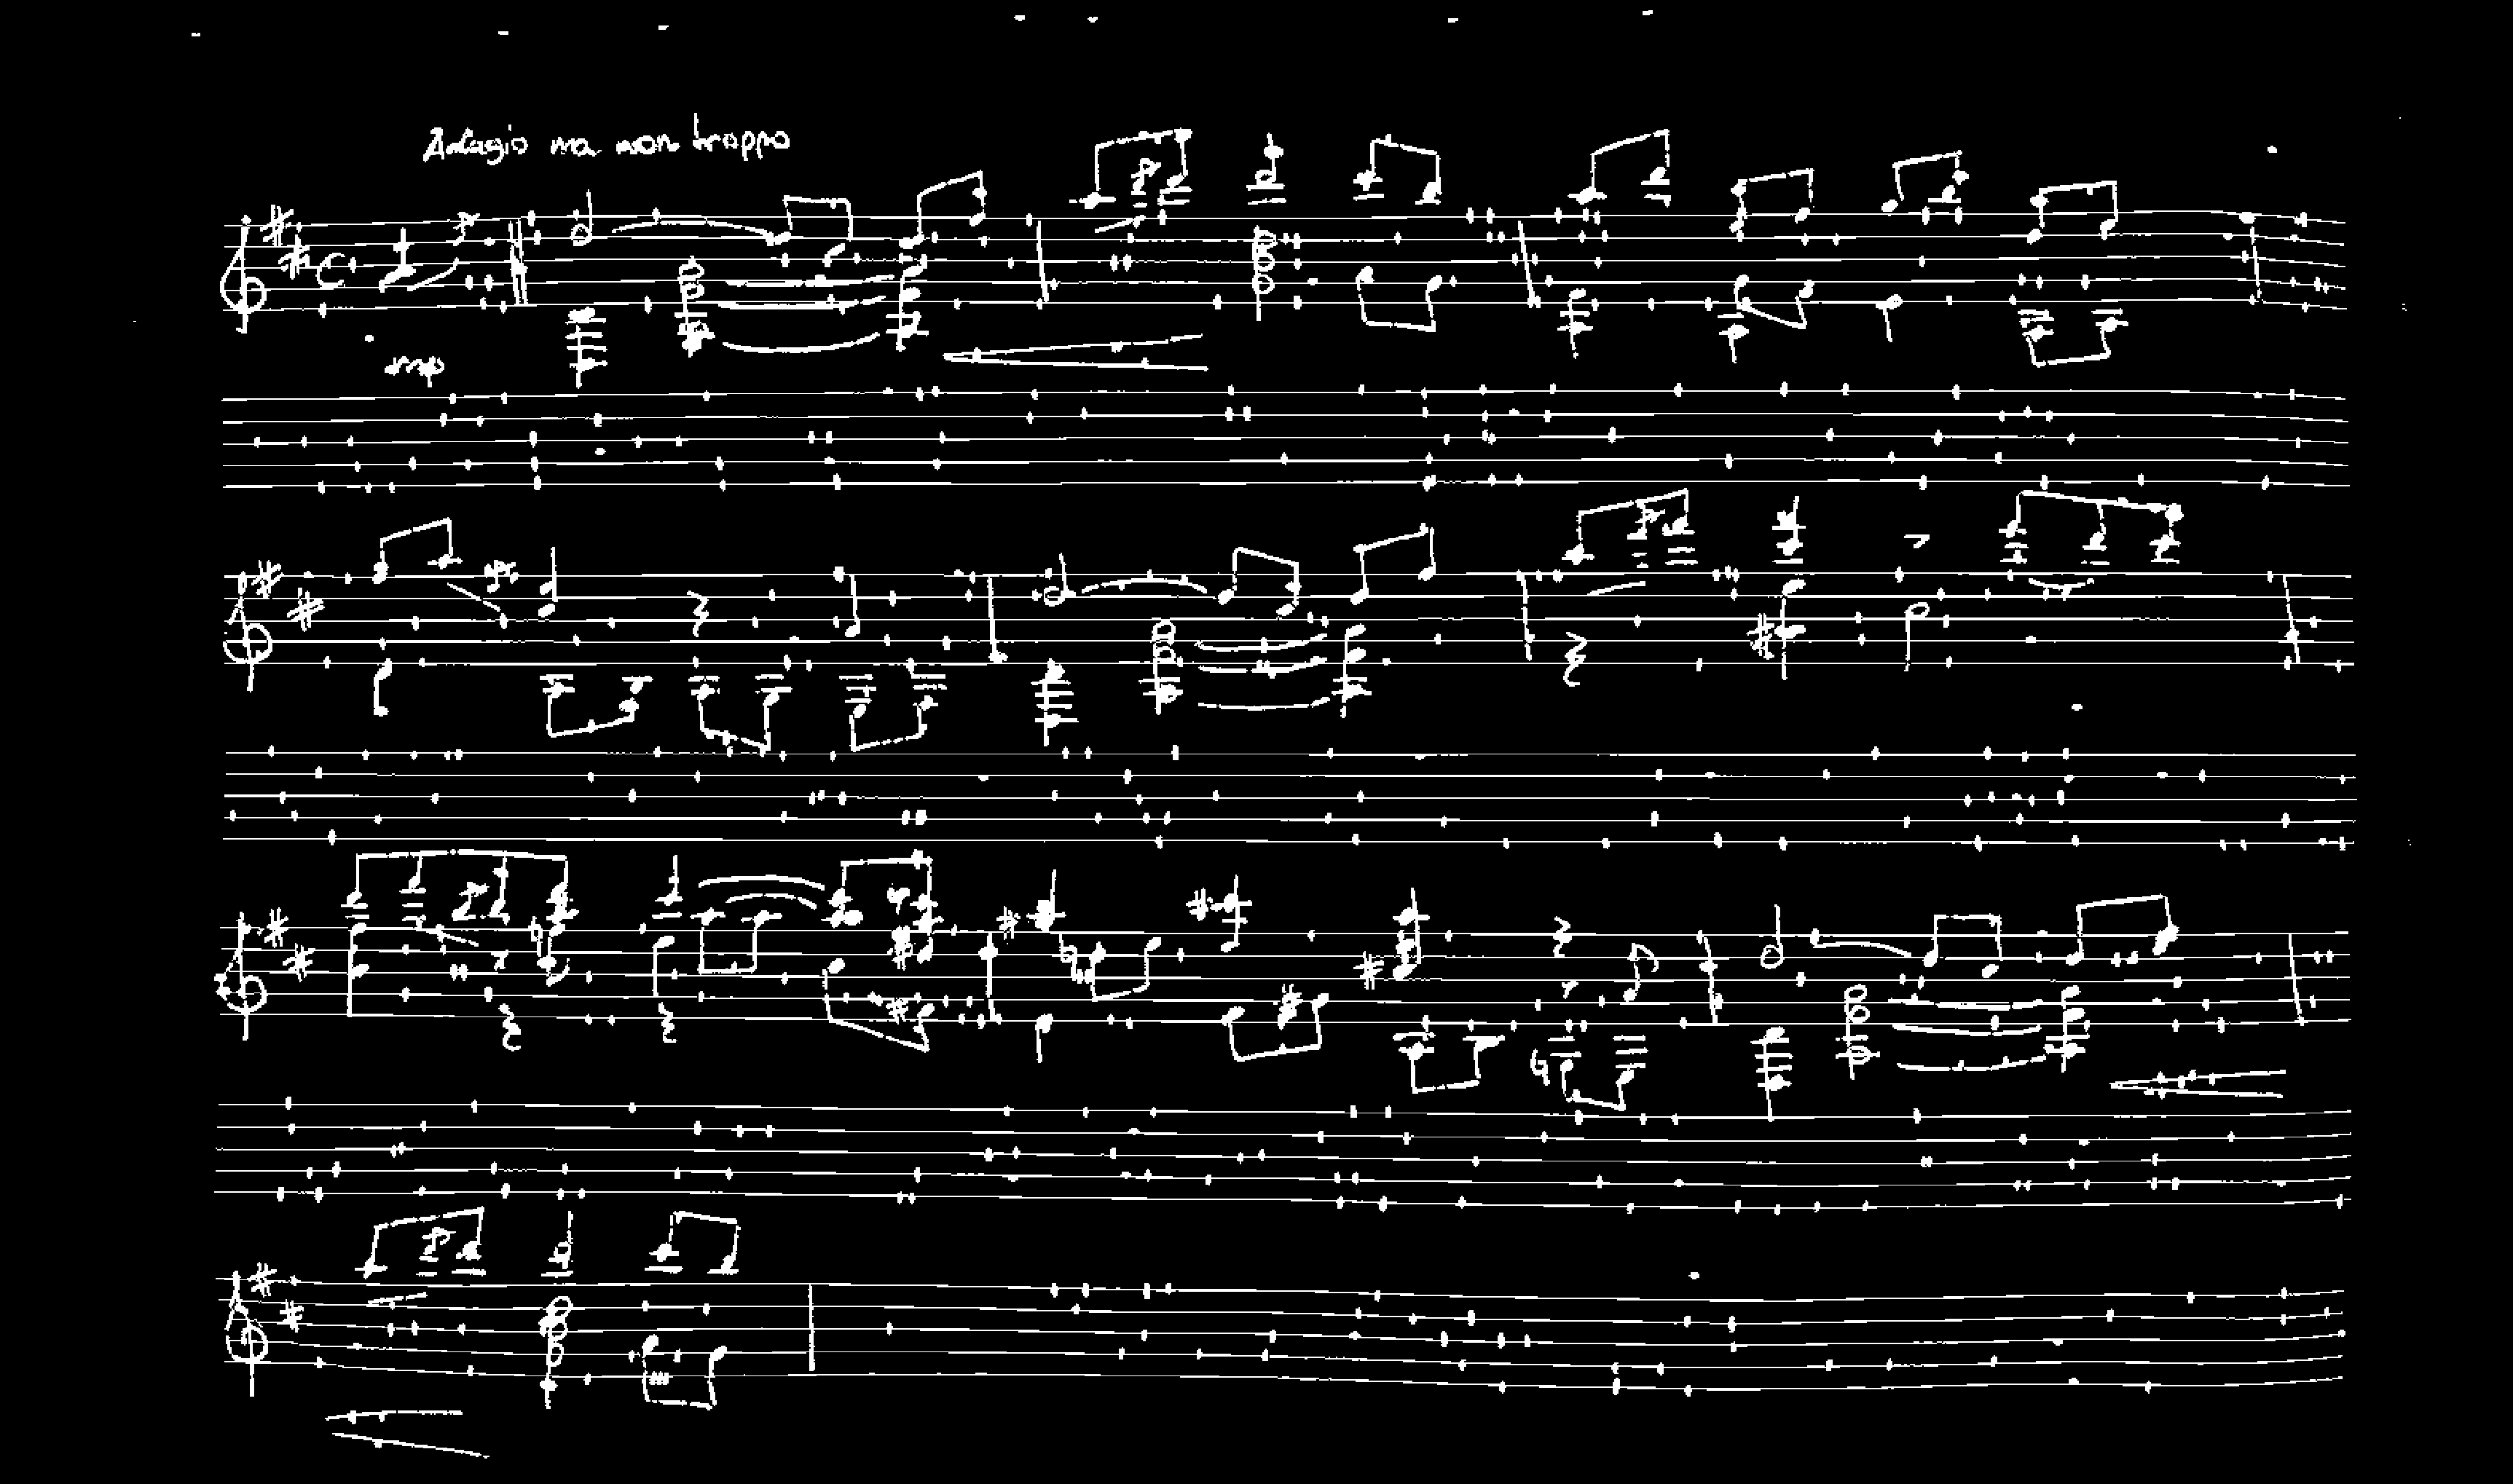 Adagio ma non troppo
mp
G